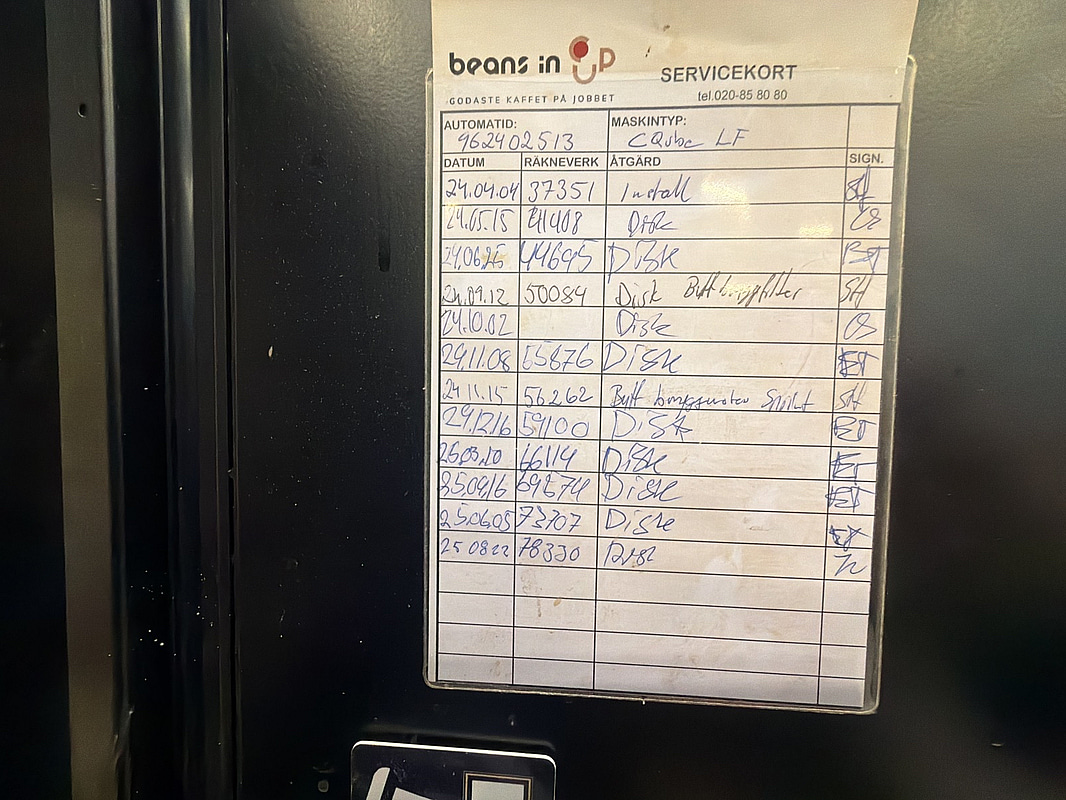 beans in cup
GODASTE KAFFET PÅ JOBBET
SERVICEKORT
tel.020-85 80 80
AUTOMATID: 962402513 MASKINTYP: CQube LF
DATUM RÄKNEVERK ÅTGÄRD SIGN.
24.04.04 37351 Install SH
24.05.15 41408 Disk CS
24.06.25 44695 Disk ET
24.09.12 50084 Disk Bytt bryggfilter SH
24.10.02 Disk CS
24.11.08 55876 Disk ET
24.11.15 56262 Bytt bryggmotor SH
24.12.16 59100 Disk ET
66114 Disk ET
25.04.16 69574 Disk ET
25.06.05 73707 Disk ET
25 08 22 78330 Disk